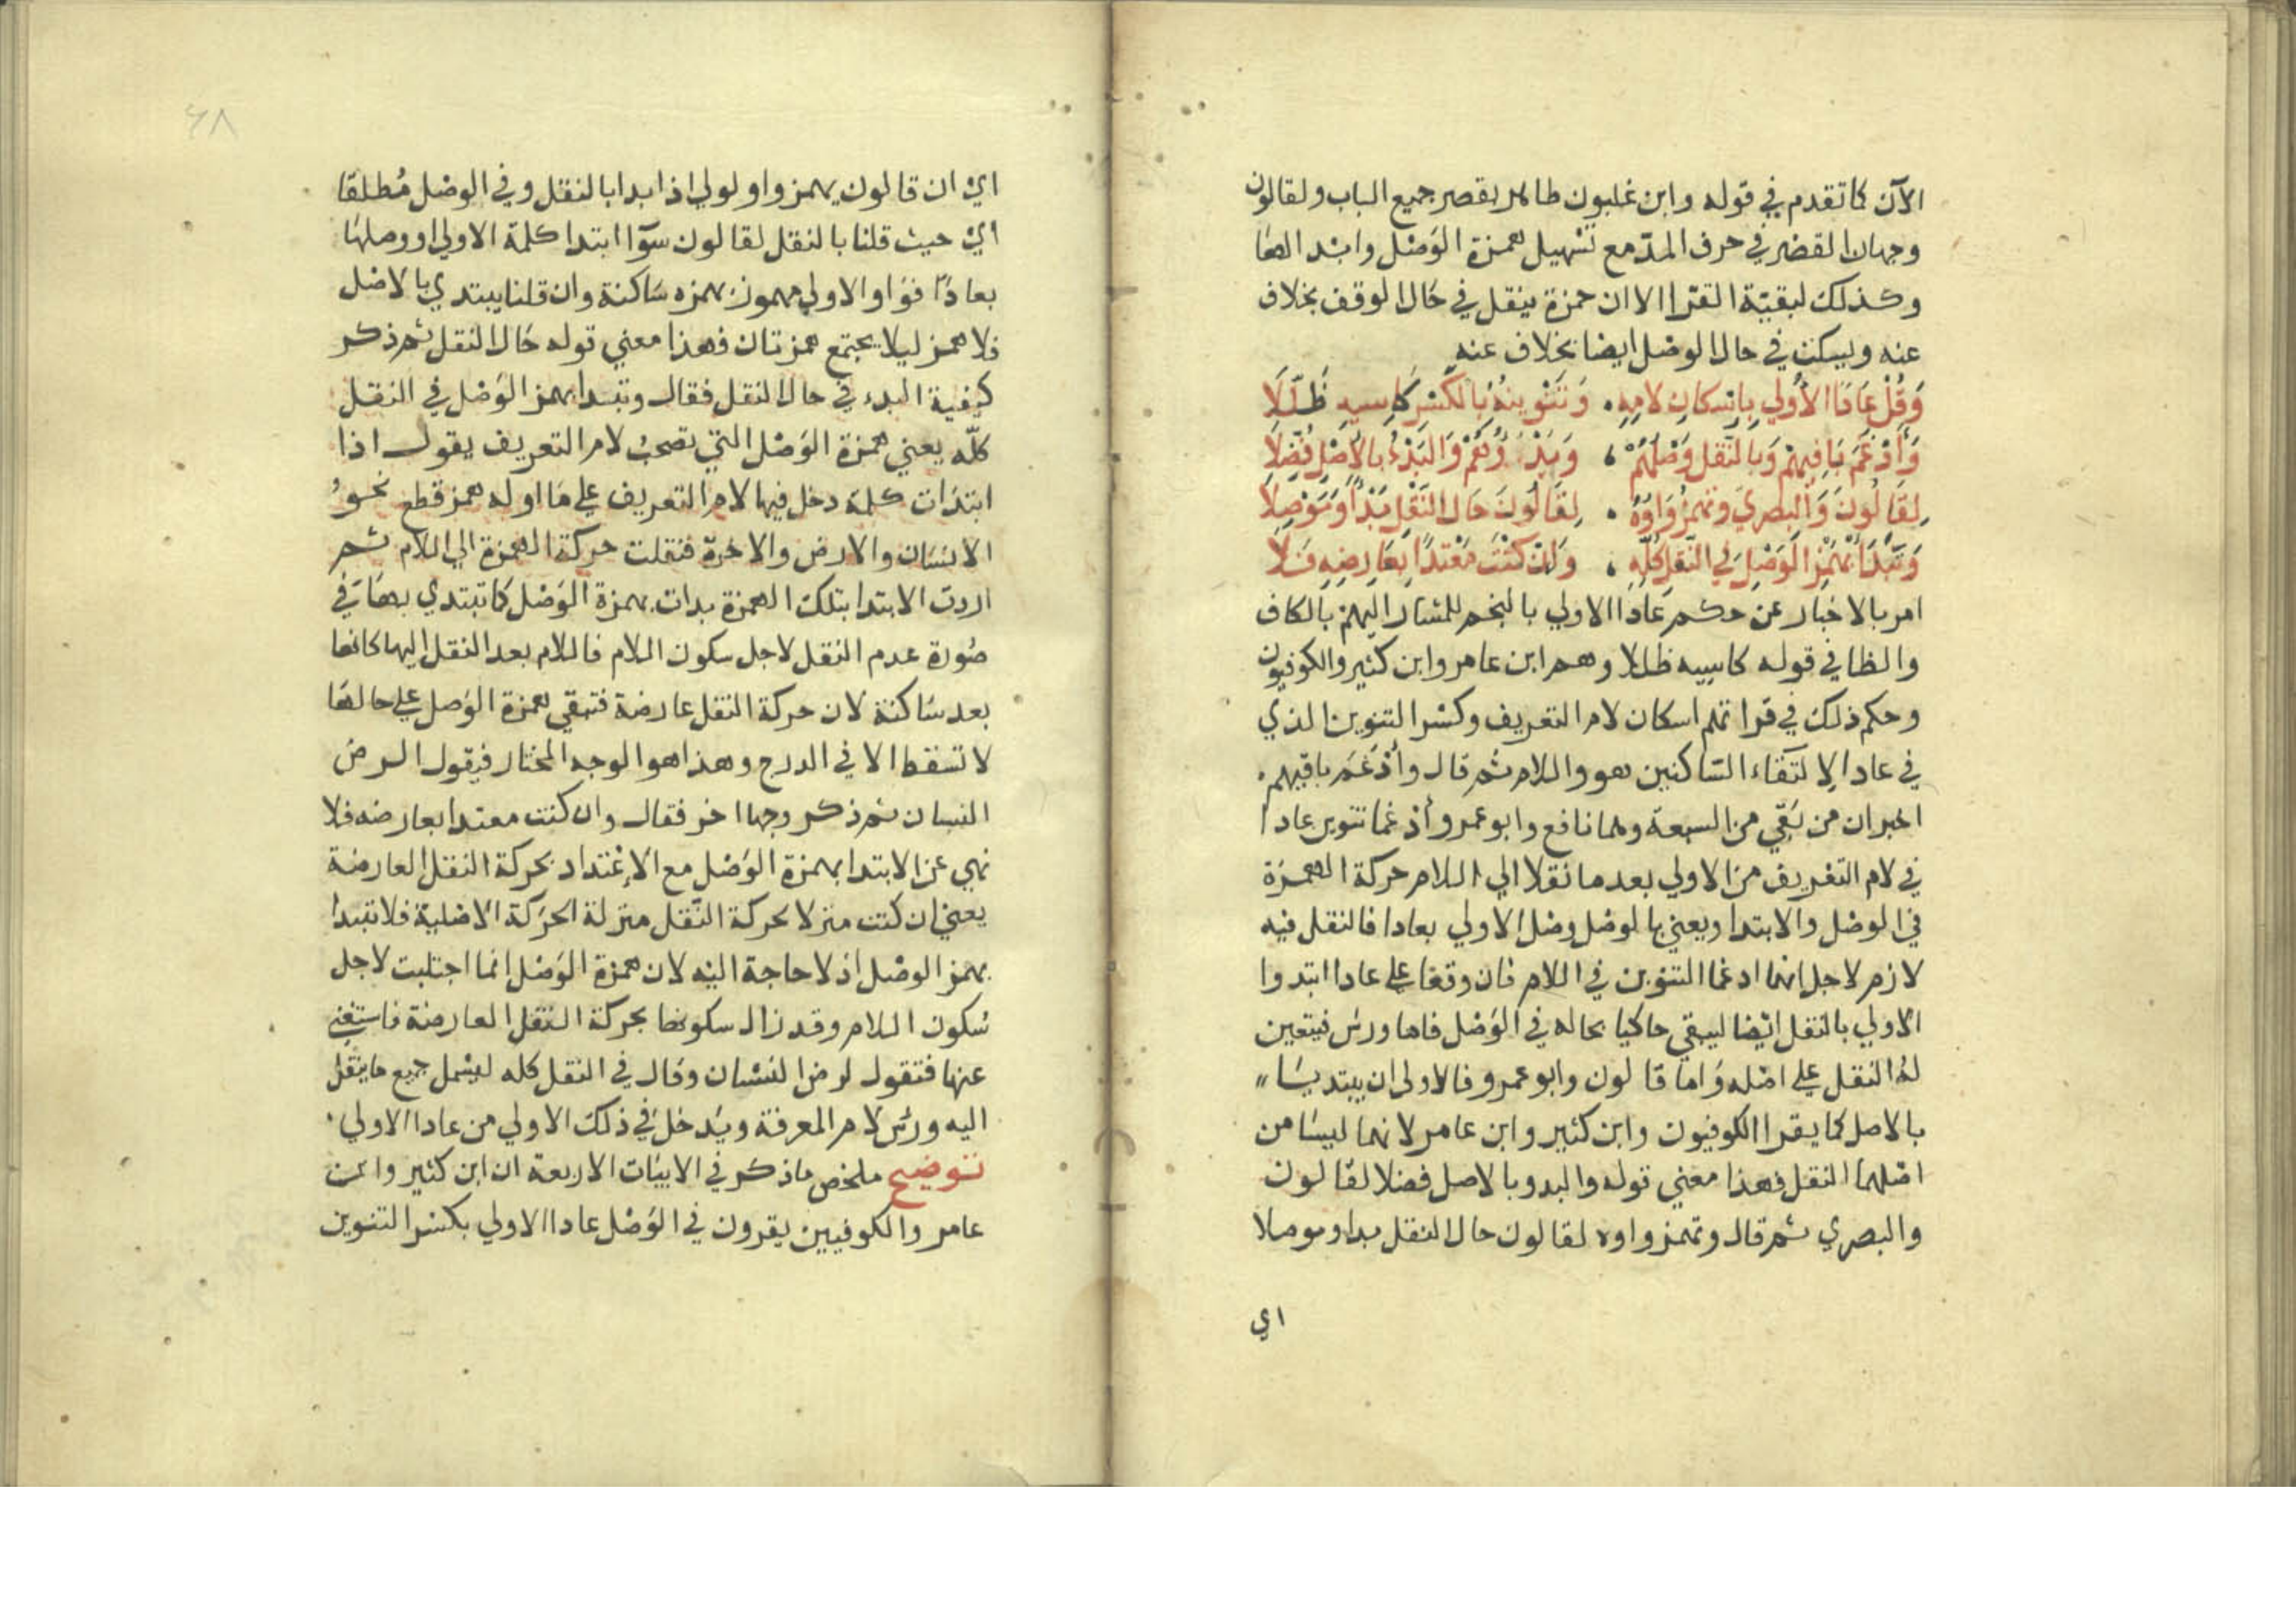 الآن كما تقدم في قوله وابن غلبون طاهر بقصر جميع الباب ولقالون
وجهان القصر في حرف المدّ مع تسهيل همزة الوصل وابدالها
وكذلك لبقيّة القرا الا ان حمزة ينقل في حال الوقف بخلاف
عنه ويسكت في حال الوصل ايضا بخلاف عنه
وَقُلْ عَادًا الأُولي بِاِسْكَانِ لامِهِ ۰ وَتَنْوِينُهُ بِالكَسْرِ كَاسِيهِ ظَلَّلَا
وَأَدْغَمَ بَاقِيهِمْ وَبِالنَّقْلِ وَصْلُهُمْ ، وَبَدْؤُهُمْ وَالبَدْءُ بِالأَصْلِ فُضِّلَا
لِقَالُونَ وَالبَصْرِي وَتُهْمَزُ وَاوُهُ ۰ لِقَالُونَ حَالَ النَّقْلِ بَدْأً وَمَوْصِلَا
وَتَبْدَأُ بِهَمْزِ الوَصْلِ فِي النَّقْلِ كُلِّهِ ، وَاِنْ كُنْتَ مُعْتَدًّا بِعَارِضِهِ فَلَا
امر بالاخبار عن حكم عَادًا الاولي بالنجم للمشار اليهم بالكاف
والظا في قوله كاسيه ظللا وهم ابن عامر وابن كثير والكوفيون
وحكم ذلك في قراتهم اسكان لام التعريف وكسر التنوين الذي
في عادا لِالتقاء السّاكنين هو واللام ثم قال وأدْغَمَ باقيهم ۰
اخبر ان من بَقِي من السبعة وهما نافع وابو عمرو أدغما تنوين عادا
في لام التعريف من الاولي بعد ما نقلا الي اللام حركة الهمزة
في الوصل والابتدا ويعني بالوصل وصل الاولي بعادا فالنقل فيه
لازم لاجل انهما ادغما التنوين في اللام فان وقفا علي عادا ابتدوا
الاولي بالنقل ايضا ليبقي حاكيا بحاله في الوَصْل فاما ورش فيتعين
لهُ النقل علي اصْله وَاما قالون وابو عمرو فالاولى ان يبتديا
بالاصل كما يقرا الكوفيون وابن كثير وابن عامر لانهما ليسا من
اصْلهما النقل فهذا معني قوله والبدو بالاصل فضلا لقالون
والبصري ثم قال وتهمز واوه لقالون حال النقل بدا وموصلا
اي
٦٨
ايْ ان قالون يهمز واو لولي اذا بدا بالنقل وفي الوصْل مُطلقا
ايْ حيث قلنا بالنقل لقالون سوَآ ابتدا كلمة الاولي او وصلها
بعادًا فوَاو الاولي مهموز بهمزه سَاكنة وان قلنا يبتدي بالاصْل
فلا همز ليلا يجتمع همزتان فهذا معني قوله حَال النقل ثم ذكر
كيفية البدء في حال النقل فقال وتبدا بهمز الوَصْل في النقل
كلّه يعني همزة الوَصْل التي تصحبُ لام التعريف يقول اذا
ابتدَات كلمة دخل فيها لام التعريف علي مَا اوله همز قطع نحوُ
الانسَان والارض والاخرة فنقلت حركة الهمزة الي اللام ثم
اردت الابتدا بتلك الهمزة بدات بهمزة الوَصْل كما تبتدي بها في
صُورة عدم النقل لاجل سكون اللام فاللام بعد النقل اليها كانها
بعد سَاكنة لان حركة النقل عارضة فتبقي همزة الوَصل علي حالها
لا تسْقط الا في الدرج وهذا هو الوجه المختار فيقول الرض
النسان ثم ذكر وجها اخر فقال وان كنت معتدا بعارضه فلا
نهي عن الابتدا بهمزة الوَصْل مع الاِعْتداد بحركة النقل العارضة
يعني ان كنت منزلا لحركة النَّقل منزلة الحرَكة الاصْلية فلا تبدا
بهمز الوصْل اذ لا حاجة اليْه لان همزة الوَصْل انما اجتلبت لاجل
سُكون اللام وقد زال سكونها بحركة النقل العارضة فاستُغني
عنها فتقول لرض لنْسَان وقال في النقل كله ليشمل جميع ما ينقل
اليه ورْش لام المعرفة ويَدخل في ذلك الاولي من عادا الاولي ۰
تَوضيح ملخص ماذكر في الابيَات الاربعة ان ابن كثير وابن
عامر والكوفيين يقرون في الوَصْل عادا الاولي بكسْر التنوين